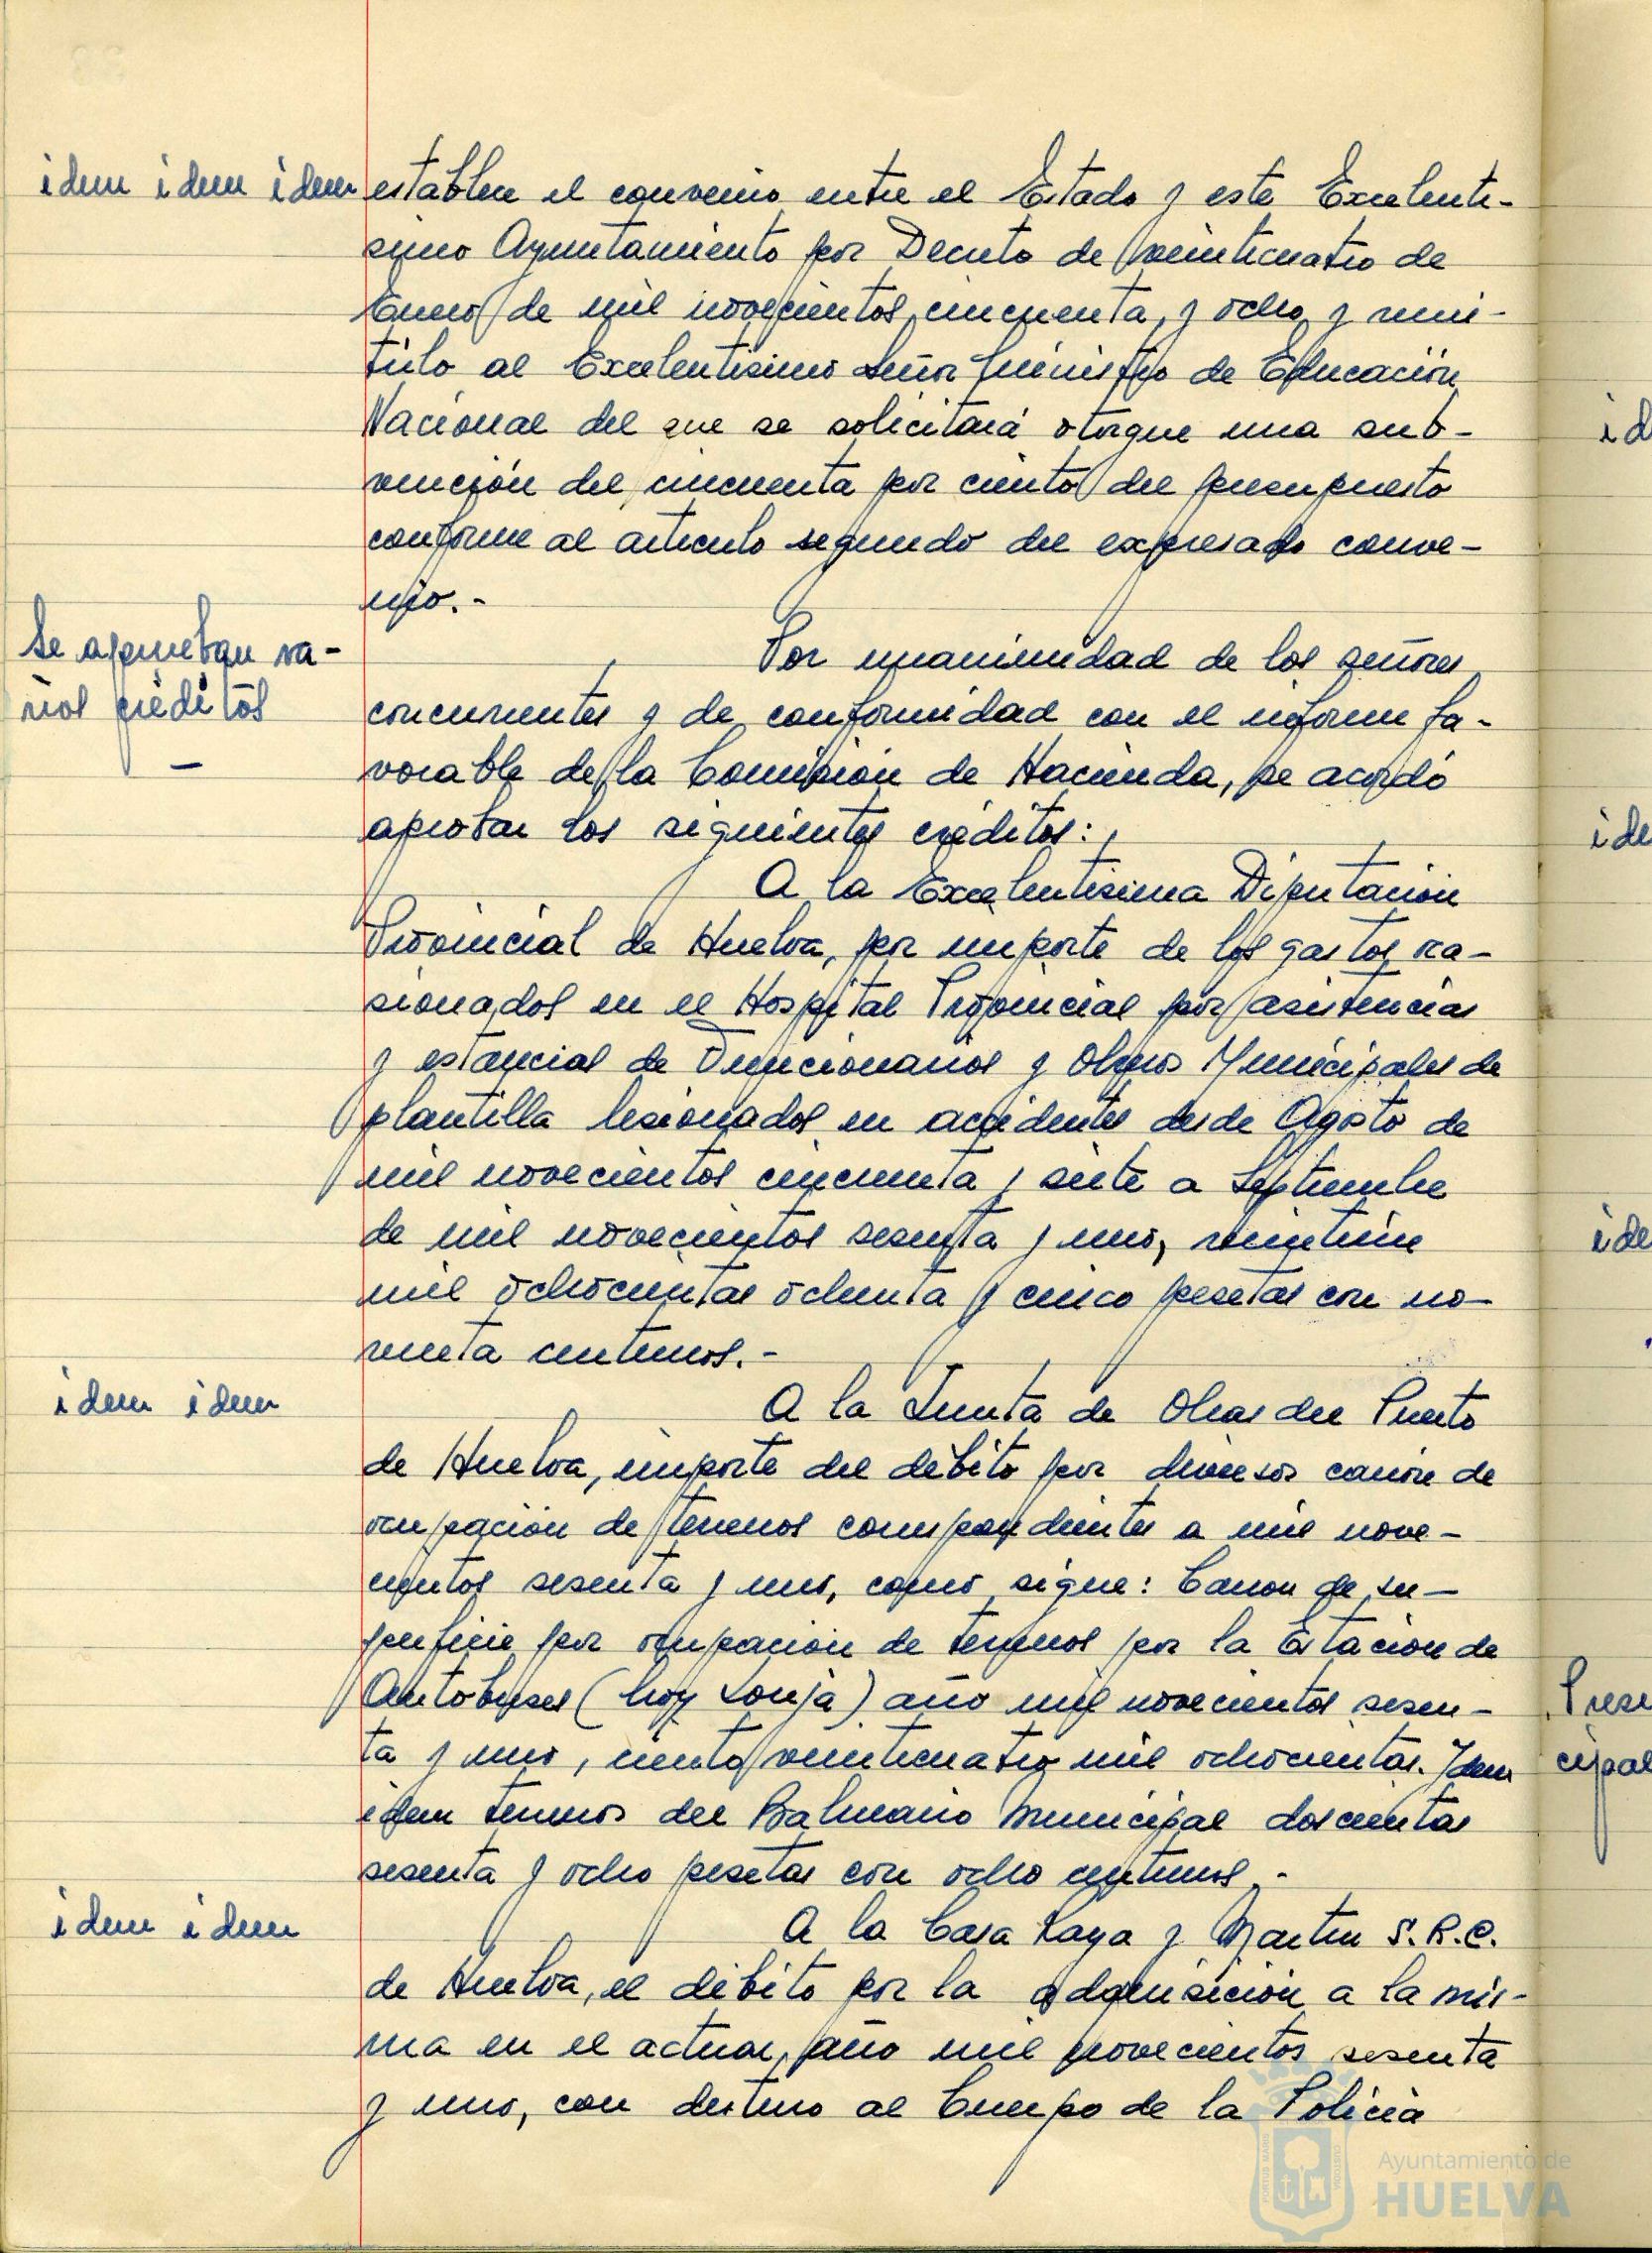 idem idem idem
establece el convenio entre el Estado y este Excelentí-
simo Ayuntamiento por Decreto de veinticuatro de
Enero de mil novecientos cincuenta y ocho y remi-
tirlo al Excelentisimo Señor Ministro de Educación
Nacional del que se solicitará otorgue una sub-
vención del cincuenta por ciento del presupuesto
conforme al articulo segundo del expresado conve-
nio.-
Se aprueban va-
rios créditos
Por unanimidad de los señores
concurrentes y de conformidad con el informe fa-
vorable de la Comisión de Hacienda, se acordó
aprobar los siguientes créditos:
A la Excelentisima Diputación
Provincial de Huelva, por importe de los gastos oca-
sionados en el Hospital Provincial por asistencias
y estancias de Funcionarios y Obreros Municipales de
plantilla lesionados en accidentes desde Agosto de
mil novecientos cincuenta y siete a Septiembre
de mil novecientos sesenta y uno,
mil ochocientas ochenta y cinco pesetas con no-
venta centimos.-
idem idem
A la Junta de Obras del Puerto
de Huelva, importe del débito por diversos canon de
ocupación de terrenos correspondientes a mil nove-
cientos sesenta y uno, como sigue: Canon de su-
perficie por ocupación de terrenos por la Estación de
Autobuses (hoy Lonja) año mil novecientos sesen-
ta y uno, ciento veinticuatro mil ochocientas. Idem
idem terrenos del Balneario Municipal doscientas
sesenta y ocho pesetas con ocho centimos.-
idem idem
A la Casa Raya y Martin S.R.C.
de Huelva, el débito por la adquisición a la mis-
ma en el actual año mil novecientos sesenta
y uno, con destino al Cuerpo de la Policia
id
ide
ide
Prese
cipal
Ayuntamiento de
HUELVA